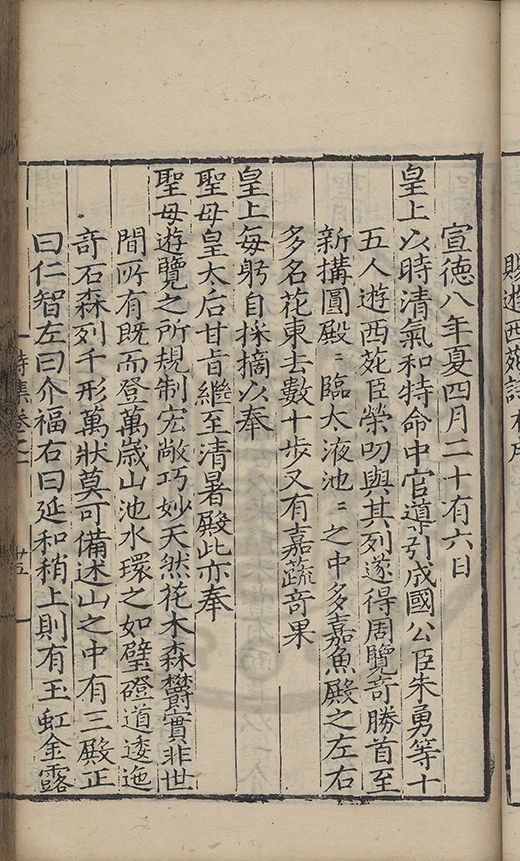 賜遊西苑詩
宣徳八年夏四月二十有六日
皇上以時清氣和特命中官導引成國公臣朱勇等十
五人遊西苑臣榮叨與其列遂得周覽竒勝首至
新搆圓殿〻臨太液池〻之中多嘉魚殿之左右
多名花東去數十歩又有嘉蔬竒果
皇上每躬自採摘以奉
聖母皇太后甘旨繼至清暑殿此亦奉
聖母遊覽之所規制宏敞巧妙天然花木森欝實非世
間所有既而登萬嵗山池水環之如璧磴道逶迤
竒石森列千形萬狀莫可備述山之中有三殿正
曰仁智左曰介福右曰延和稍上則有玉虹金露
詩集卷之一 廿五